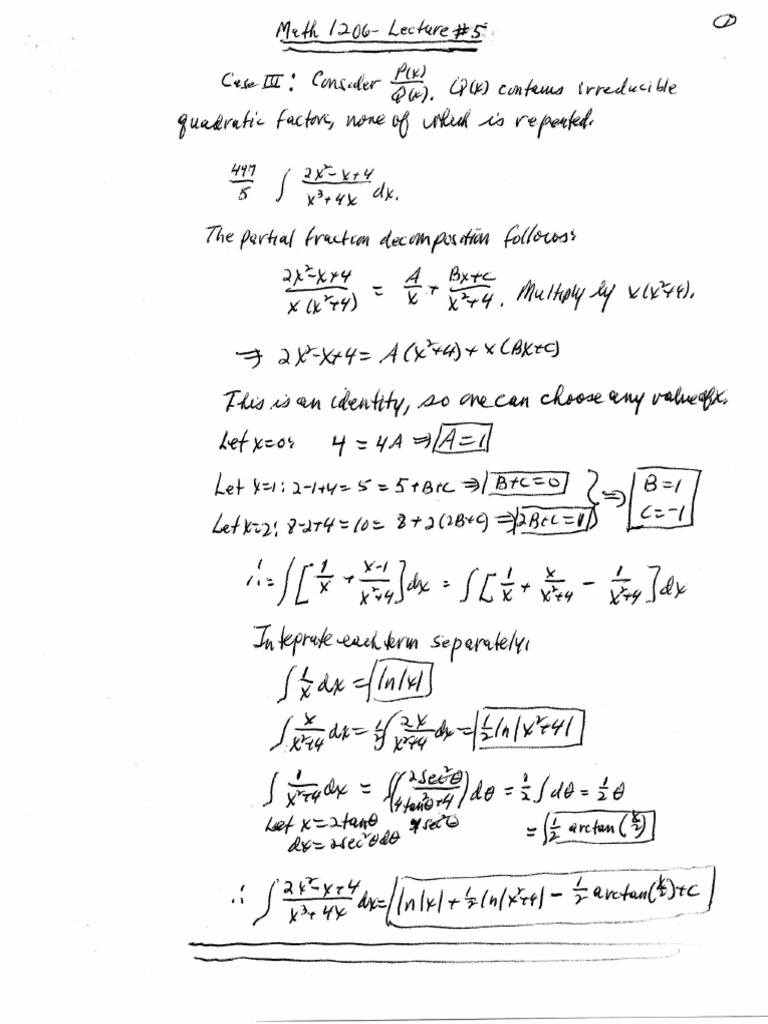 ①
Math 1206 - Lecture #5
Case III: Consider P(x)/Q(x). Q(x) contains irreducible
quadratic factors, none of which is repeated.
497/5 ∫ (2x²-x+4)/(x³+4x) dx.
The partial fraction decomposition follows:
(2x²-x+4)/(x(x²+4)) = A/x + (Bx+C)/(x²+4). Multiply by x(x²+4).
⇒ 2x²-x+4 = A(x²+4) + x(Bx+C)
This is an identity, so one can choose any value of x.
Let x=0: 4 = 4A ⇒ A=1
Let x=1: 2-1+4 = 5 = 5+B+C ⇒ B+C=0 } ⇒ B=1
Let x=2: 8-2+4 = 10 = 8+2(2B+C) ⇒ 2B+C=1 C=-1
∴ = ∫[1/x + (x-1)/(x²+4)]dx = ∫[1/x + x/(x²+4) - 1/(x²+4)]dx
Integrate each term separately:
∫ 1/x dx = ln|x|
∫ x/(x²+4) dx = 1/2 ∫ 2x/(x²+4) dx = 1/2 ln|x²+4|
∫ 1/(x²+4) dx = ∫(2sec²θ/(4tan²θ+4))dθ = 1/2 ∫dθ = 1/2 θ
Let x=2tanθ 4sec²θ
dx=2sec²θdθ = 1/2 arctan(x/2)
∴ ∫ (2x²-x+4)/(x³+4x) dx = ln|x| + 1/2 ln|x²+4| - 1/2 arctan(x/2)+C